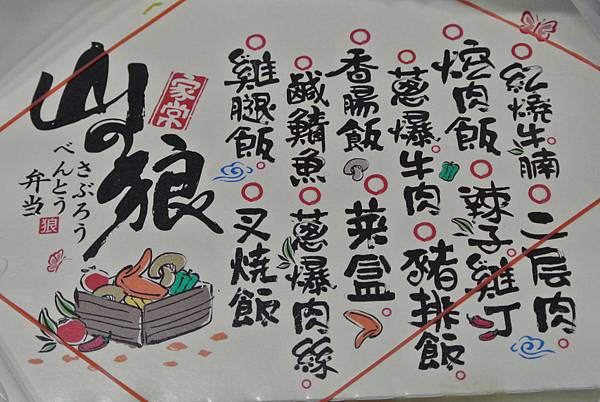 紅燒牛腩
二层肉
焢肉飯
辣子雞丁
蔥爆牛肉
豬排飯
香腸飯
菜盒
鹹鯖魚
蔥爆肉絲
雞腿飯
叉燒飯
家常
山の狼
さぶろう
べんとう
弁当
狼